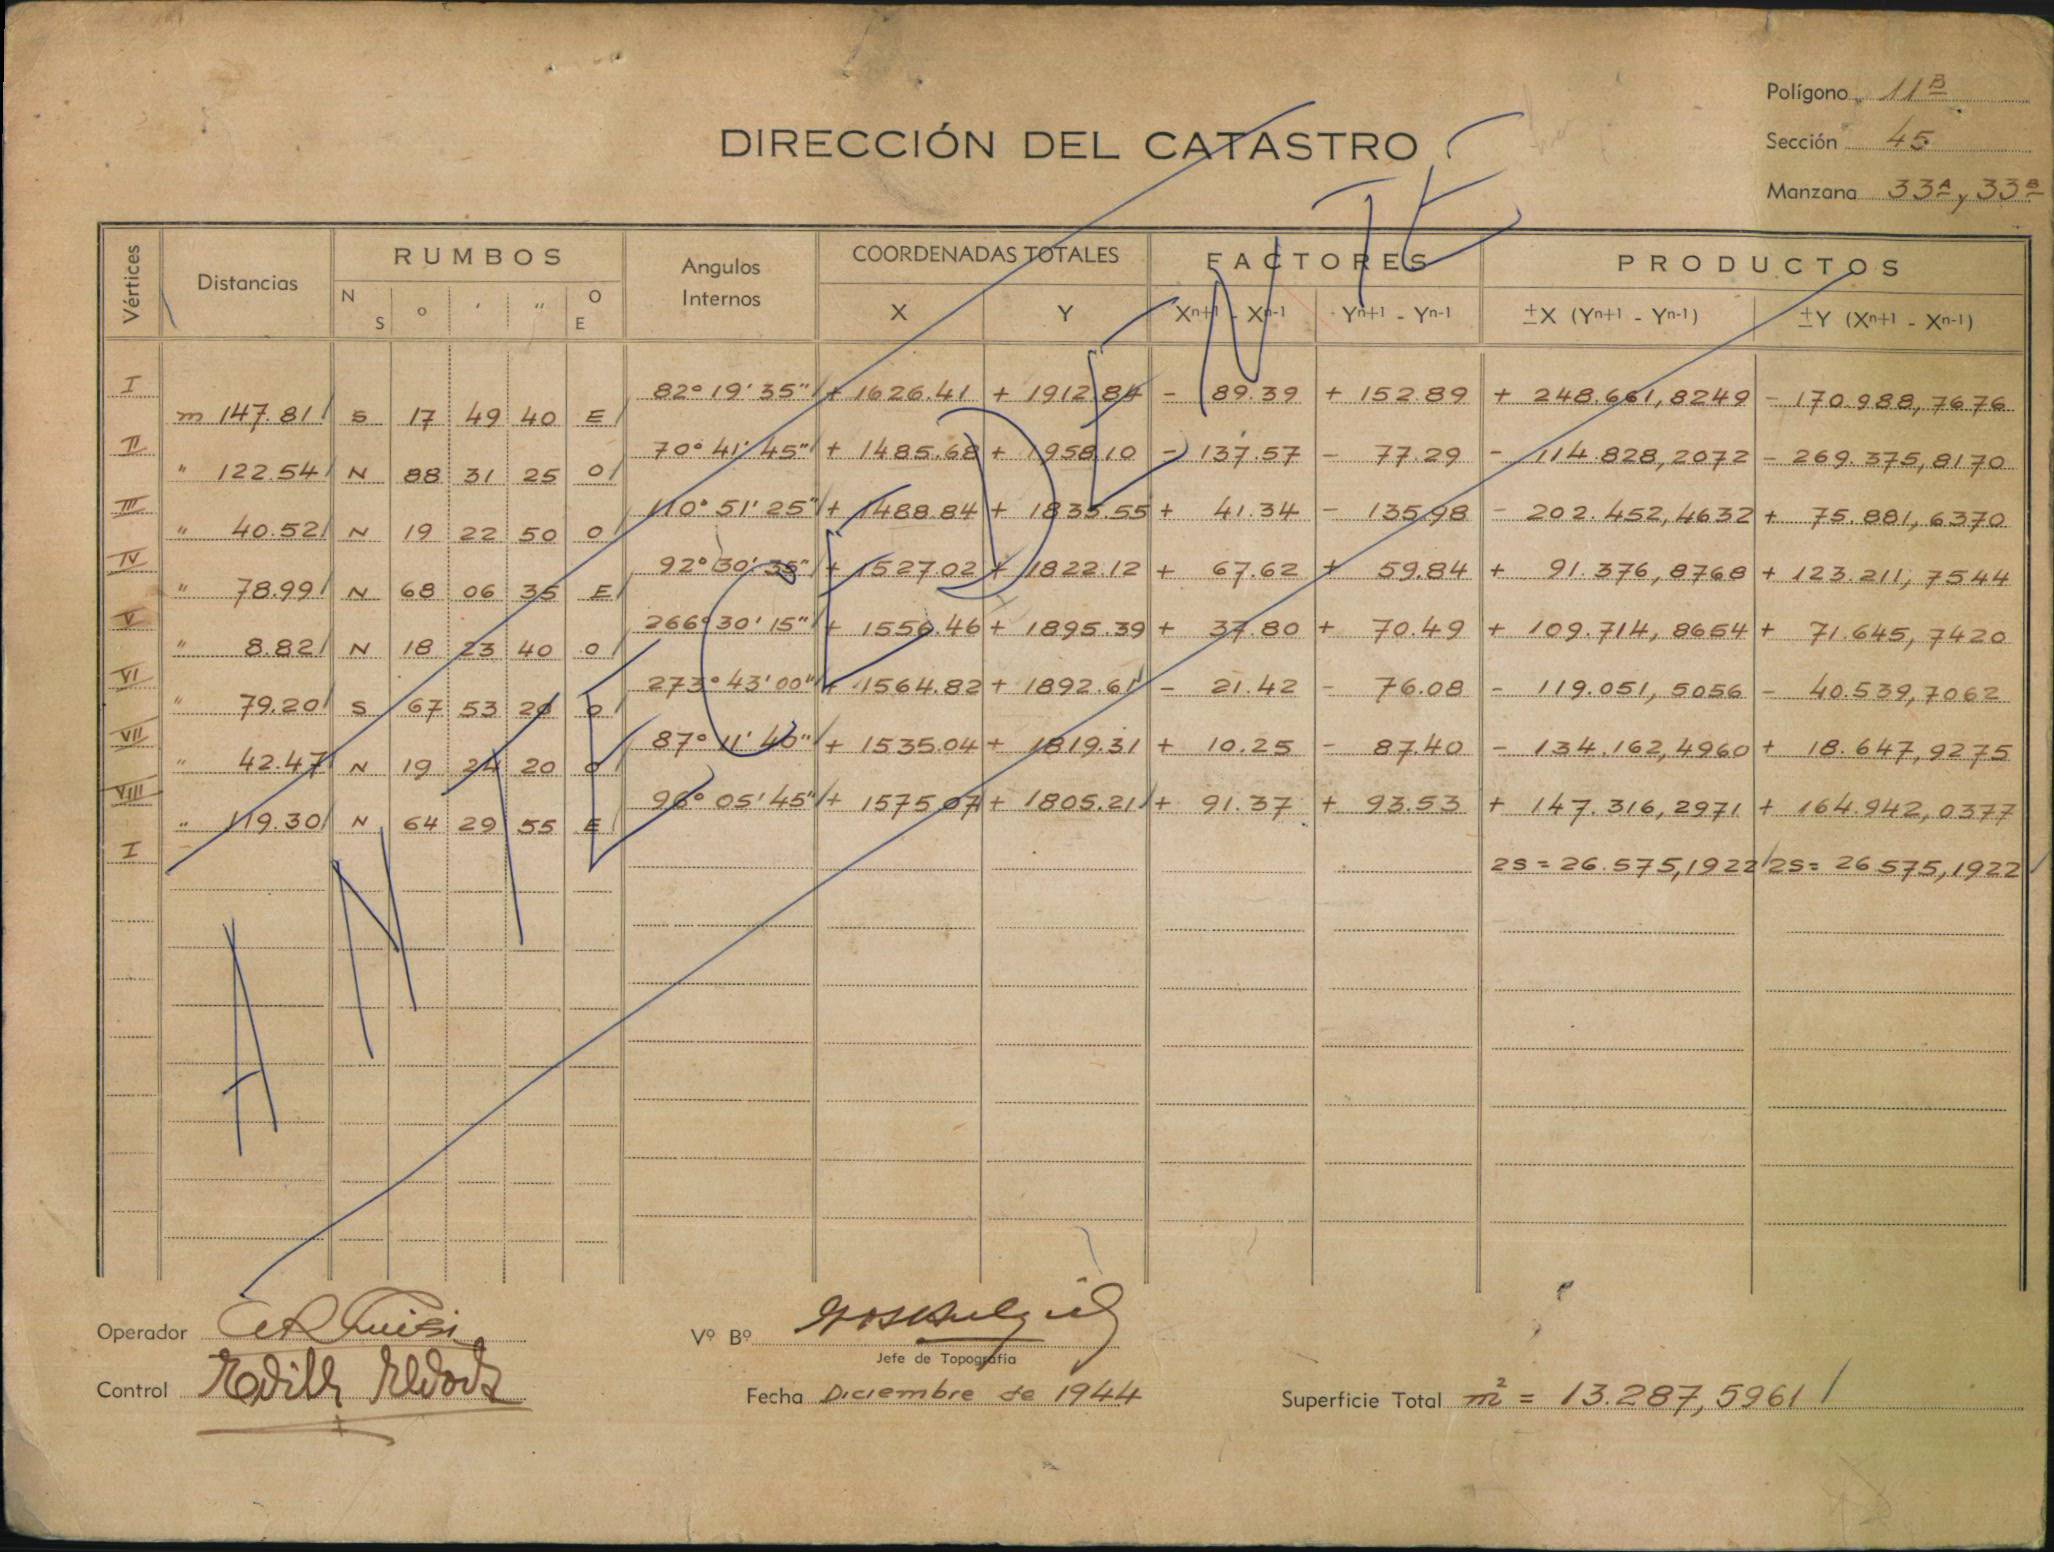 Polígono 11B
DIRECCIÓN DEL CATASTRO
Sección 45
Manzana 33A, 33B
Vértices Distancias RUMBOS Angulos Internos COORDENADAS TOTALES FACTORES PRODUCTOS
N S ° ' " O E X Y Xn+1 - Xn-1 Yn+1 - Yn-1 ±X (Yn+1 - Yn-1) ±Y (Xn+1 - Xn-1)
I 82° 19' 35" + 1626.41 + 1912.84 - 89.39 + 152.89 + 248.661,8249 - 170.988,7676
m 147.81 S 17 49 40 E
II 70° 41' 45" + 1485.68 + 1958.10 - 137.57 - 77.29 - 114.828,2072 - 269.375,8170
" 122.54 N 88 31 25 O
III 110° 51' 25" + 1488.84 + 1835.55 + 41.34 - 135.98 - 202.452,4632 + 75.881,6370
" 40.52 N 19 22 50 O
IV 92° 30' 35" + 1527.02 + 1822.12 + 67.62 + 59.84 + 91.376,8768 + 123.211,7544
" 78.99 N 68 06 35 E
V 266° 30' 15" + 1556.46 + 1895.39 + 37.80 + 70.49 + 109.714,8654 + 71.645,7420
" 8.82 N 18 23 40 O
VI 273° 43' 00" + 1564.82 + 1892.61 - 21.42 - 76.08 - 119.051,5056 - 40.539,7062
" 79.20 S 67 53 20 O
VII 87° 17' 40" + 1535.04 + 1819.31 + 10.25 - 87.40 - 134.162,4960 + 18.647,9275
" 42.47 N 19 24 20 O
VIII 96° 05' 45" + 1575.07 + 1805.21 + 91.37 + 93.53 + 147.316,2971 + 164.942,0377
" 119.30 N 64 29 55 E
I 2S = 26.575,1922 2S = 26.575,1922
ANTECEDENTE
Operador
Vº Bº
Jefe de Topografía
Control
Fecha Diciembre de 1944
Superficie Total m2 = 13.287,5961